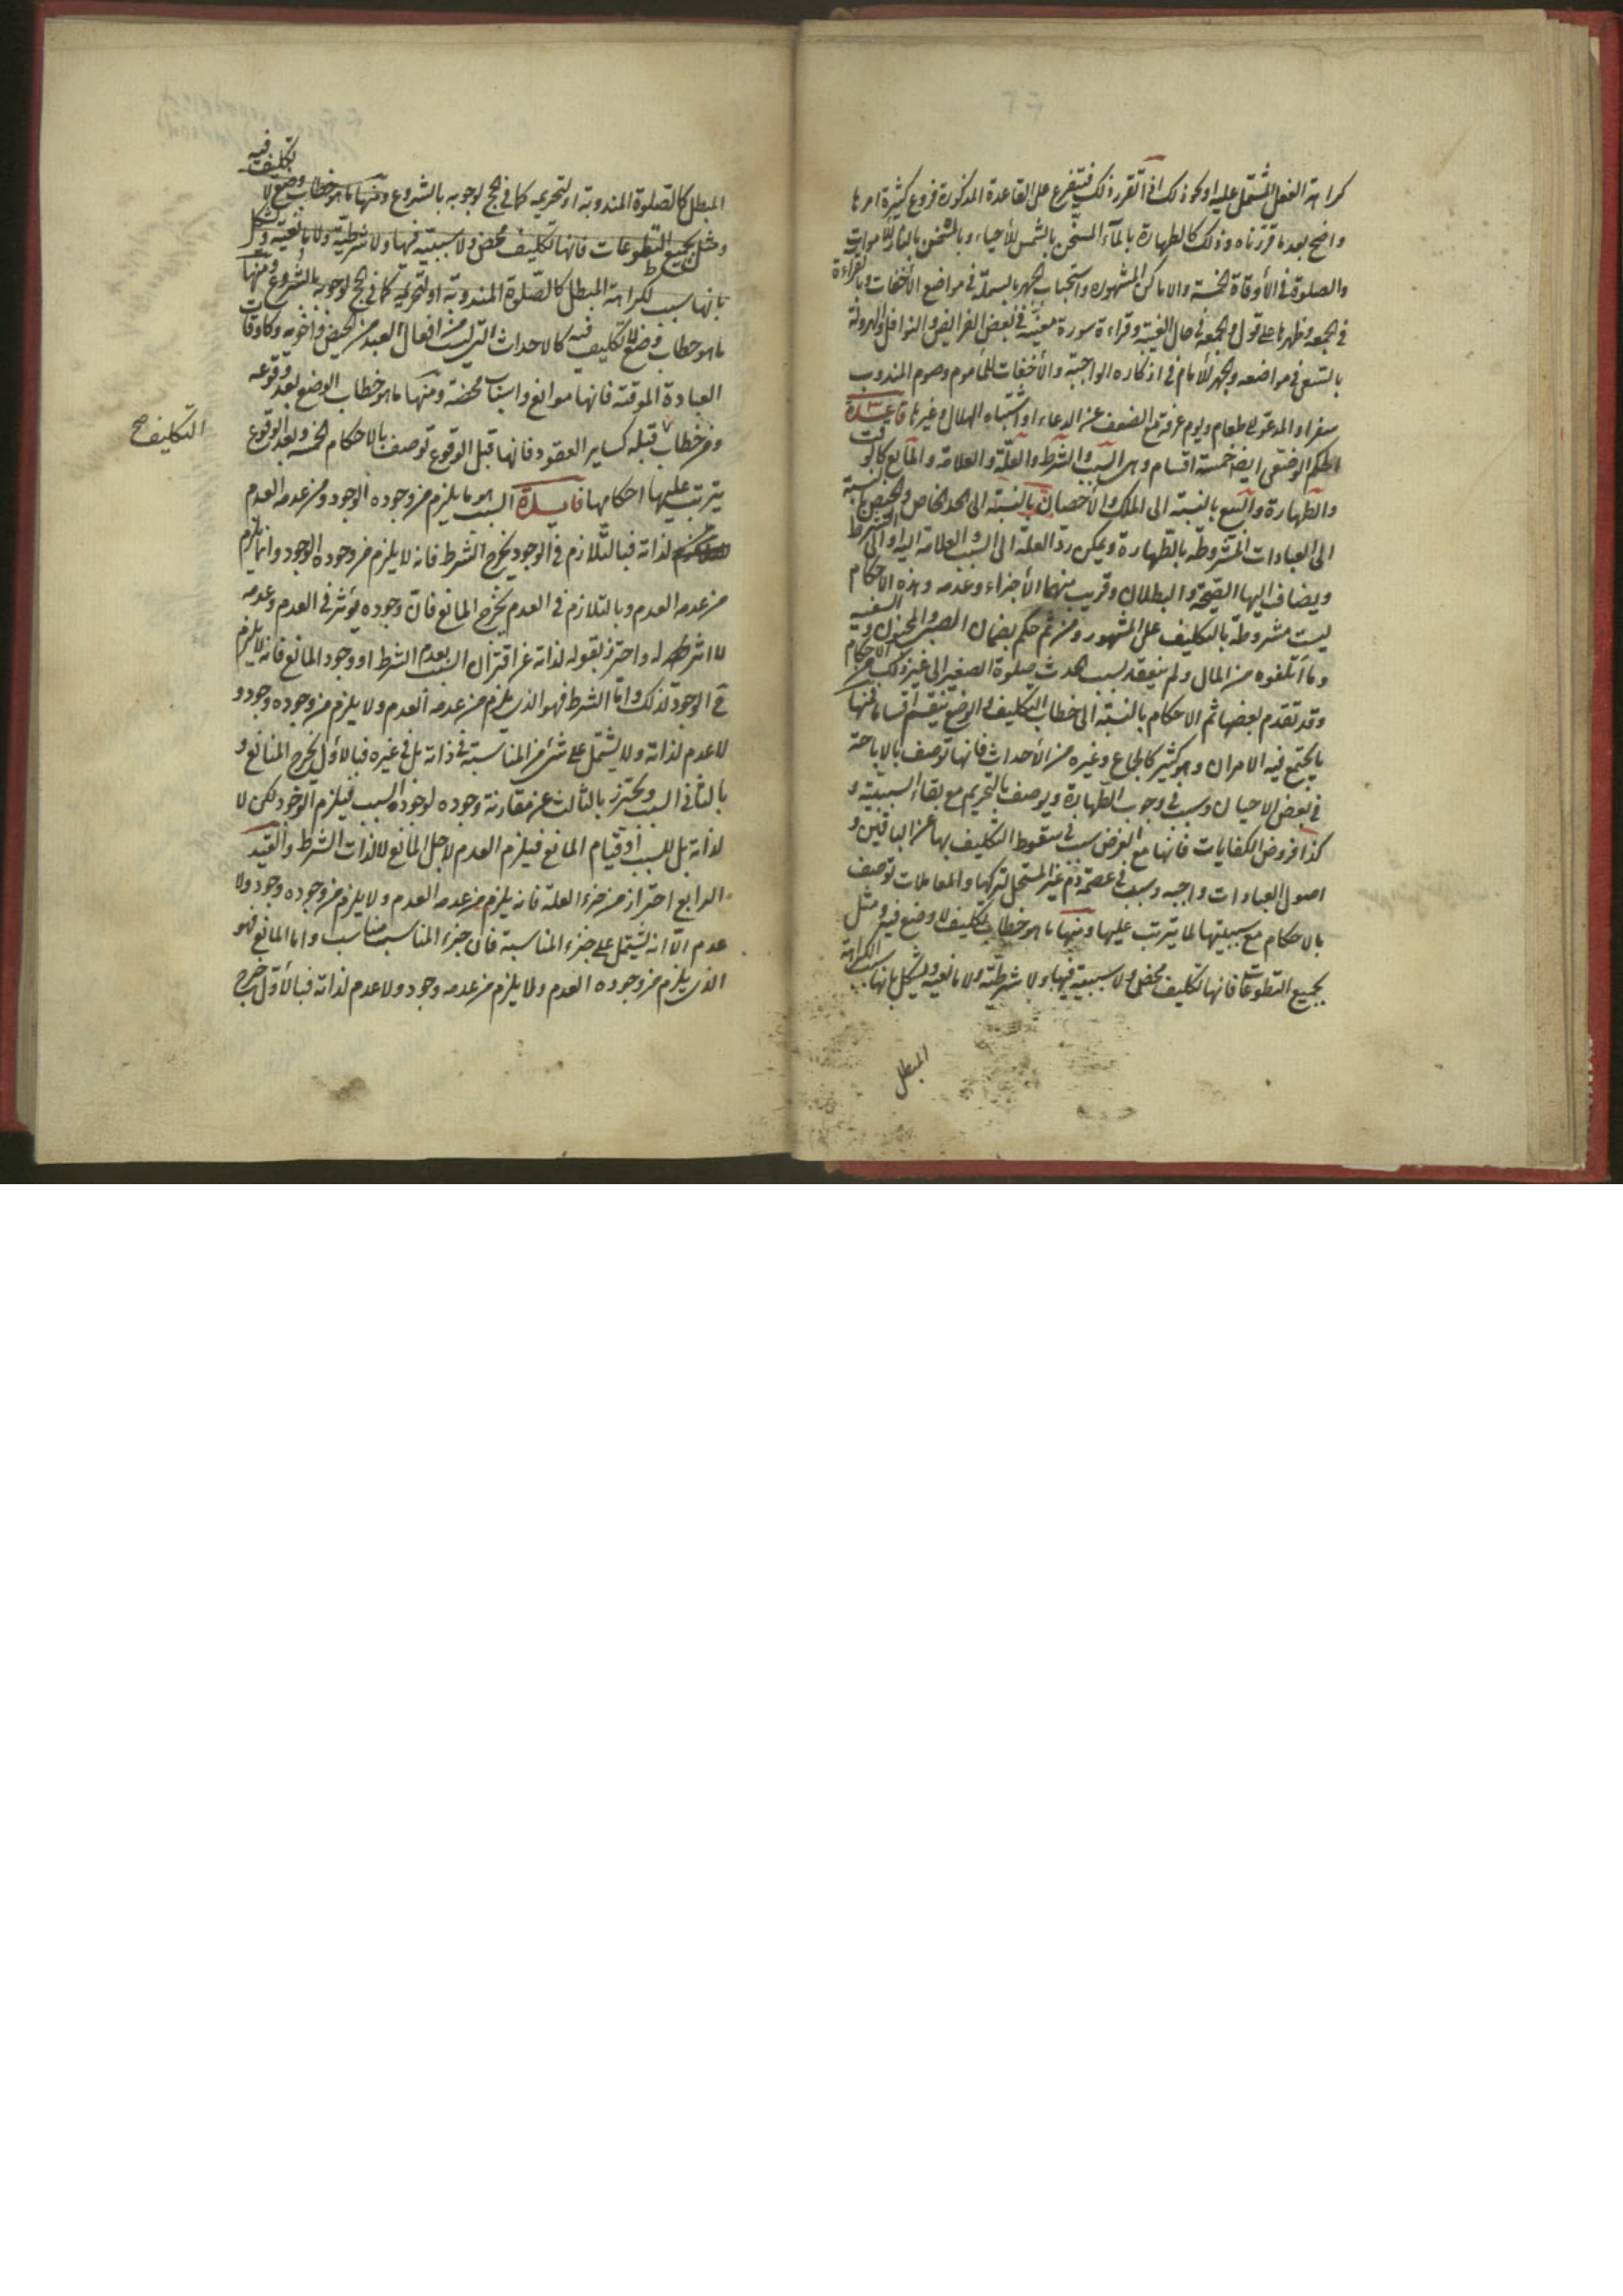 كراهة الفعل المشتمل عليه او نحو ذلك اذا تقرر ذلك فيتفرع على القاعدة المذكورة فروع كثيرة امرها
واضح بعد ما قررناه وذلك كالطهارة بالمآء المسخّن بالشمس للأحياء وبالمسخن بالنار للاموات
والصلوة في الأوقاة الخمسة والاماكن المشهورة واستحباب الجهر بالبسملة في مواضع الأخفات وبالقراءة
في الجمعة وظهرها على قول والجمعة في حال الغيبة وقراءة سورة معينة في بعض الفرايض والنوافل والهرولة
بالسعي في مواضعه والجهر للأمام في اذكاره الواجبة والأخفات للمأموم وصوم المندوب
سفرا والمدعو الى طعام ويوم عرفة مع الضعف عن الدعاء او اشتباه الهلال وغيرها قاعدة
الحكم الوضعى ايضا خمسة اقسام وهى السبب والشرط والعلّة والعلامة والمانع كالوقت
والطهارة والبيع بالنسبة الى الملك والأحصان بالنسبة الى الحد الخاص والحيض بالنسبة
الى العبادات المشروطة بالطهارة ويمكن ردّ العلة الى السبب والعلامة اليه او الى الشرط
ويضاف اليها الصّحة والبطلان وقريب منهما الأجزاء وعدمه وهذه الأحكام
ليست مشروطة بالتكليف على المشهور ومن ثم حكم بضمان الصبي والمجنون والسفيه
وما أتلفوه من المال ولم ينعقد بسبب الحدث صلوة الصغير الى غير ذلك من الاحكام
وقد تقدم بعضها ثم الاحكام بالنسبة الى خطاب التكليف والوضع ينقسم اقساما فمنها
ما يجتمع فيه الامران وهو كثير كالجماع وغيره من الأحداث فانها توصف بالاباحة
في بعض الاحيان وسبب في وجوب الطهارة ويوصف بالتحريم مع بقاء السببية و
كذا فروض الكفايات فانها مع الفرض سبب في سقوط التكليف بها عن الباقين و
اصول العبادات واجبه وسبب في عصمة دم غير المستحل لتركها والمعاملات توصف
بالاحكام مع سببيتها لما يترتب عليها ومنها ما هو خطاب تكليف لا وضع فيه ومثل
بجميع التطوعات فانها تكليف محض ولا سببية فيها ولا شرطيّة ولا مانعية ويشكل بانها سبب لكراهة
المبطل
المبطل كالصّلوة المندوبة او لتحريمه كما في الحج لوجوبه بالشروع ومنها ما هو خطاب وضع لا
تكليف فيه
ومثل بجميع التطوعات فانها تكليف محض ولا سببية فيها ولا شرطيّة ولا مانعية ويشكل
بانها سبب لكراهة المبطل كالصّلوة المندوبة او لتحريمه كما في الحج لوجوبه بالشروع ومنها
ما هو خطاب وضع لا تكليف فيه كالاحداث التى ليست من افعال العبد من الحيض واخويه وكاوقات
العبادة الموقتة فانها موانع واسباب محضة ومنها ما هو خطاب الوضع بعد وقوعه
ومن خطاب قبله كساير العقود فانها قبل الوقوع توصف بالاحكام الخمسة وبعد الوقوع
التكليف صح
يترتب عليها احكامها فايدة السبب هو ما يلزم من وجوده الوجود ومن عدمه العدم
لذاته فبالتّلازم في الوجود يخرج الشرط فانه لا يلزم من وجوده الوجود وانما يلزم
من عدمه العدم وبالتلازم في العدم يخرج المانع فانّ وجوده يؤثر في العدم وعدمه
لا اثر له واحترز بقوله لذاته عن اقتران السبب بعدم الشرط او وجود المانع فانه لا يلزم
ح الوجود لذلك وامّا الشرط فهو الذى يلزم من عدمه العدم ولا يلزم من وجوده وجود و
لا عدم لذاته ولا يشتمل على شئ من المناسبة في ذاته بل في غيره فبالاوّل يخرج المانع و
بالثاني السبب ويحترز بالثالث عن مقارنة وجوده لوجود السبب فيلزم الوجود لكن لا
لذاته بل للسبب أو قيام المانع فيلزم العدم لاجل المانع لا لذات الشرط والقيد
الرابع احتراز من جزء العلة فانه يلزم من عدمه العدم ولا يلزم من وجوده وجود ولا
عدم الّا انه يشتمل على جزء المناسبة فانّ جزء المناسب مناسب واما المانع فهو
الذى يلزم من وجوده العدم ولا يلزم من عدمه وجود ولا عدم لذاته فبالأوّل خرج